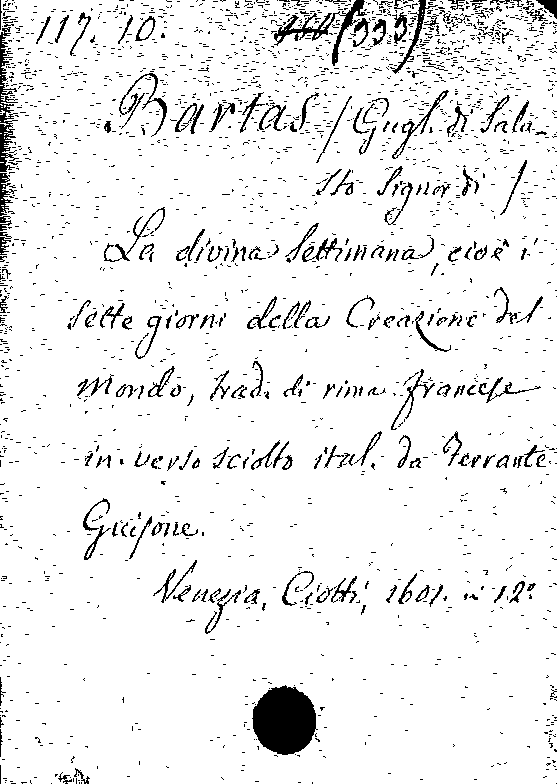 117. 10. (333)
Bartas / Gugl. di Salu-
sto Signor di /
La divina Settimana, cioè i
sette giorni della Creazione del
mondo, trad. di rima francese
in verso sciolto ital. da Ferrante
Guisone.
Venezia, Ciotti, 1601. in 12º